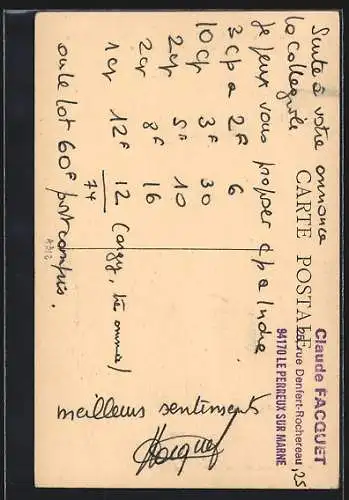 Suite à votre annonce
le collègiale
Je peux vous proposer cpa Indre
3 cpa 2F 6
10 cp 3F 30
2 cp 5F 10
2 cp 8F 16
1 cp 12F 12 (Cangy, très animée)
74
ou le lot 60F port compris.
meilleurs sentiments
CARTE POSTALE
Claude FACQUET
rue Denfert-Rochereau, 25
94170 LE PERREUX SUR MARNE